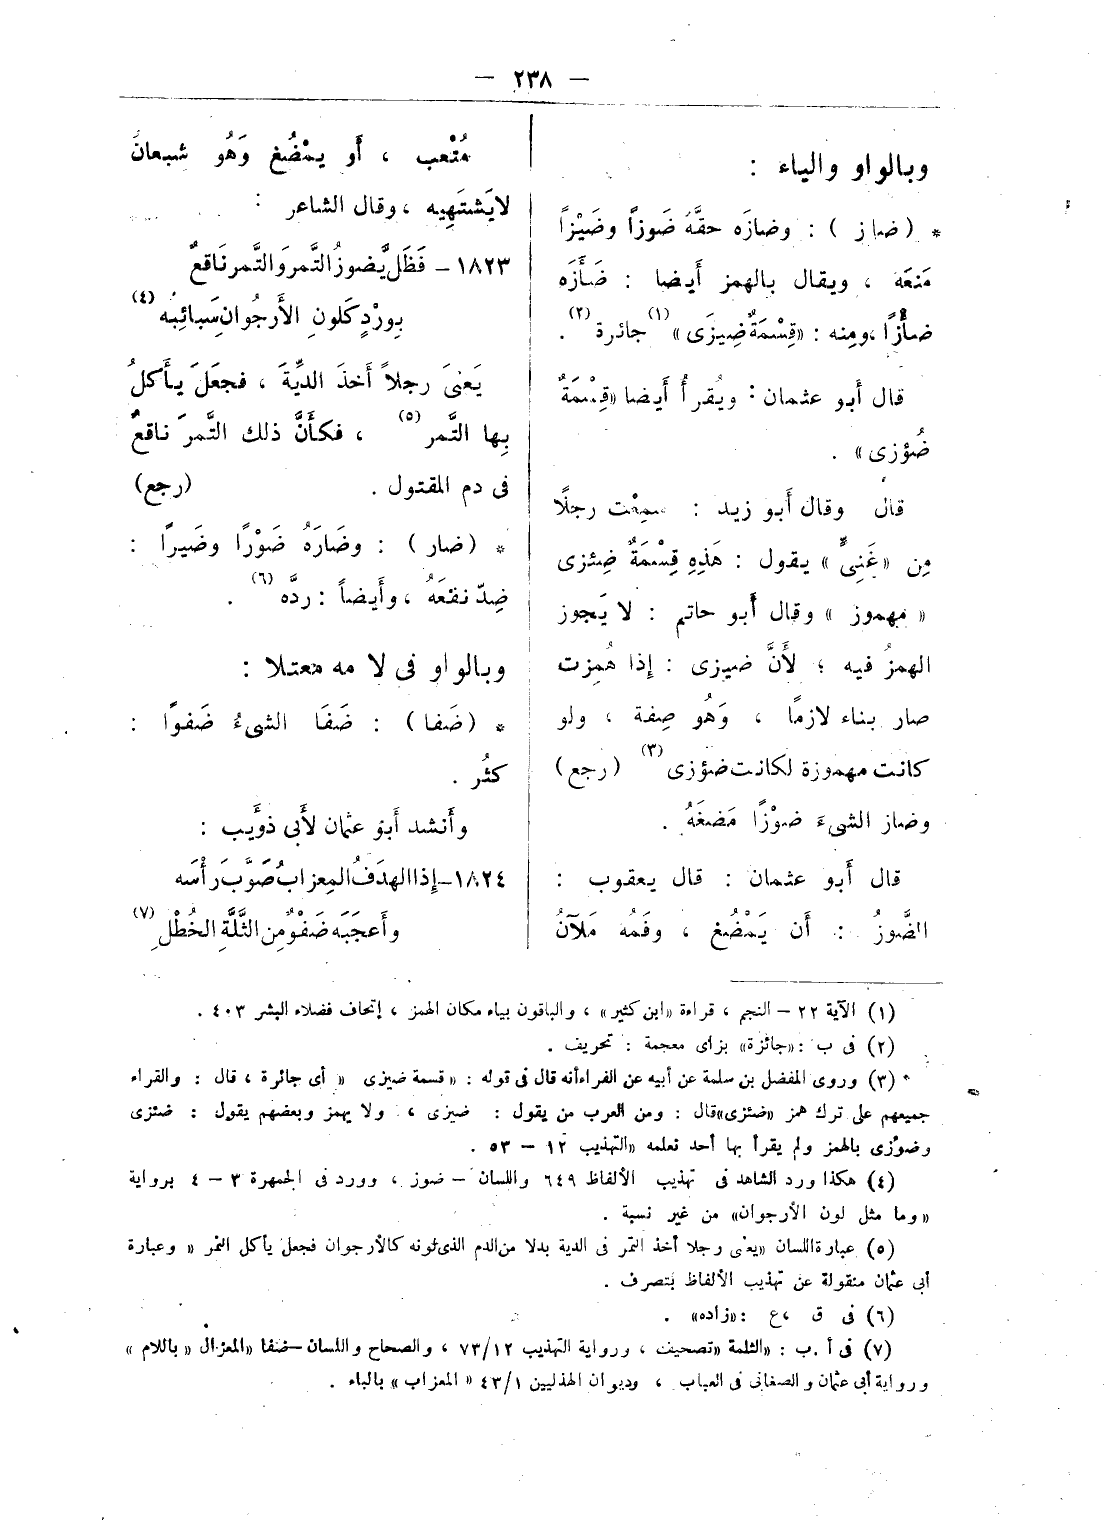 — ٢٣٨ —
وبالواو والياء :
* (ضاز) : وضازَه حقَّهُ ضَوزاً وضَيْزاً
مَنعَه ، ويقال بالهمز أَيضا : ضَأَزَه
ضأْزًا ، ومِنه : «قِسْمَةٌ ضِيزَى» (١) جائرة (٢) .
قال أَبو عثمان : ويُقرأُ أَيضا «قِسْمَةٌ
ضُؤزى» .
قال وقال أَبو زيد : سمِعْت رجلًا
مِن «غَنِىٍّ» يقول : هَذِهِ قِسْمَةٌ ضِئزى
« مهموز » وقال أَبو حاتم : لا يَجوز
الهمزُ فيه ؛ لأَنَّ ضيزى : إذا هُمِزت
صار بناء لازمًا ، وَهُو صِفة ، ولو
كانت مهموزة لكانت ضؤزى (٣) (رجع)
وضاز الشىءَ ضوْزًا مَضغَهُ .
قال أَبو عثمان : قال يعقوب :
الضَّوزُ : أَن يَمْضُغ ، وفَمُه مَلآنُ
مُتْعب ، أَو يمْضُغ وَهُو شبعانَ
لايَشتَهِيه ، وقال الشاعر :
١٨٢٣ – فَظَل يَّضوزُ التَّمر وَالتَّمر نَاقعٌ
بِورْدٍ كَلونِ الأَرجُوانِ سَبائِبُه (٤)
يَعنىَ رجلاً أَخذَ الدِّيَةَ ، فجعَلَ يأْكلُ
بِها التَّمر (٥) ، فكأَنَّ ذلك التَّمرَ ناقعٌ
فى دم المقتول . (رجع)
* (ضار) : وضَارَهُ ضَوْرًا وضَيرًا :
ضِدّ نفعَهُ ، وأَيضاً : ردَّه (٦) .
وبالواو فى لا مه معتلا :
* (ضَفا) : ضَفَا الشىءُ ضَفوًا :
كثُر .
وأَنشد أَبو عثمان لأَبى ذؤَيب :
١٨٢٤– إذا الهدَفُ المِعزابُ صَوَّبَ رأْسَه
وأَعجبَه ضَفْوٌ مِن الثَّلَّةِ الخُطْلِ (٧)
(١) الآية ٢٢ – النجم ، قراءة «ابن كثير» ، والباقون بياء مكان الهمز ، إتحاف فضلاء البشر ٤٠٣ .
(٢) فى ب : «جائزة» بزاى معجمة : تحريف .
(٣) وروى المفضل بن سلمة عن أبيه عن الفراء أنه قال فى قوله : « قسمة ضيزى » أى جائرة ، قال : والقراء
جميعهم على ترك همز «ضئزى» قال : ومن العرب من يقول : ضيزى ، ولا يهمز وبعضهم يقول : ضئزى
وضوُزى بالهمز ولم يقرأ بها أحد نعلمه «التهذيب ١٢ – ٥٣ .
(٤) هكذا ورد الشاهد فى تهذيب الألفاظ ٦٤٩ واللسان – ضوز ، وورد فى الجمهرة ٣ – ٤ برواية
«وما مثل لون الأرجوان» من غير نسبة .
(٥) عبارة اللسان «يعنى رجلا أخذ التمر فى الدية بدلا من الدم الذى لونه كالأرجوان فجعل يأكل التمر » وعبارة
أبى عثمان منقولة عن تهذيب الألفاظ بتصرف .
(٦) فى ق ، ع : «زاده» .
(٧) فى أ . ب : «الثلمة «تصحيف ، ورواية التهذيب ٧٣/١٢ ، والصحاح واللسان – ضفا «المعزال » باللام »
ورواية أبى عثمان و الصغانى فى العباب ، وديوان الهذليين ٤٣/١ « المعزاب » بالباء .